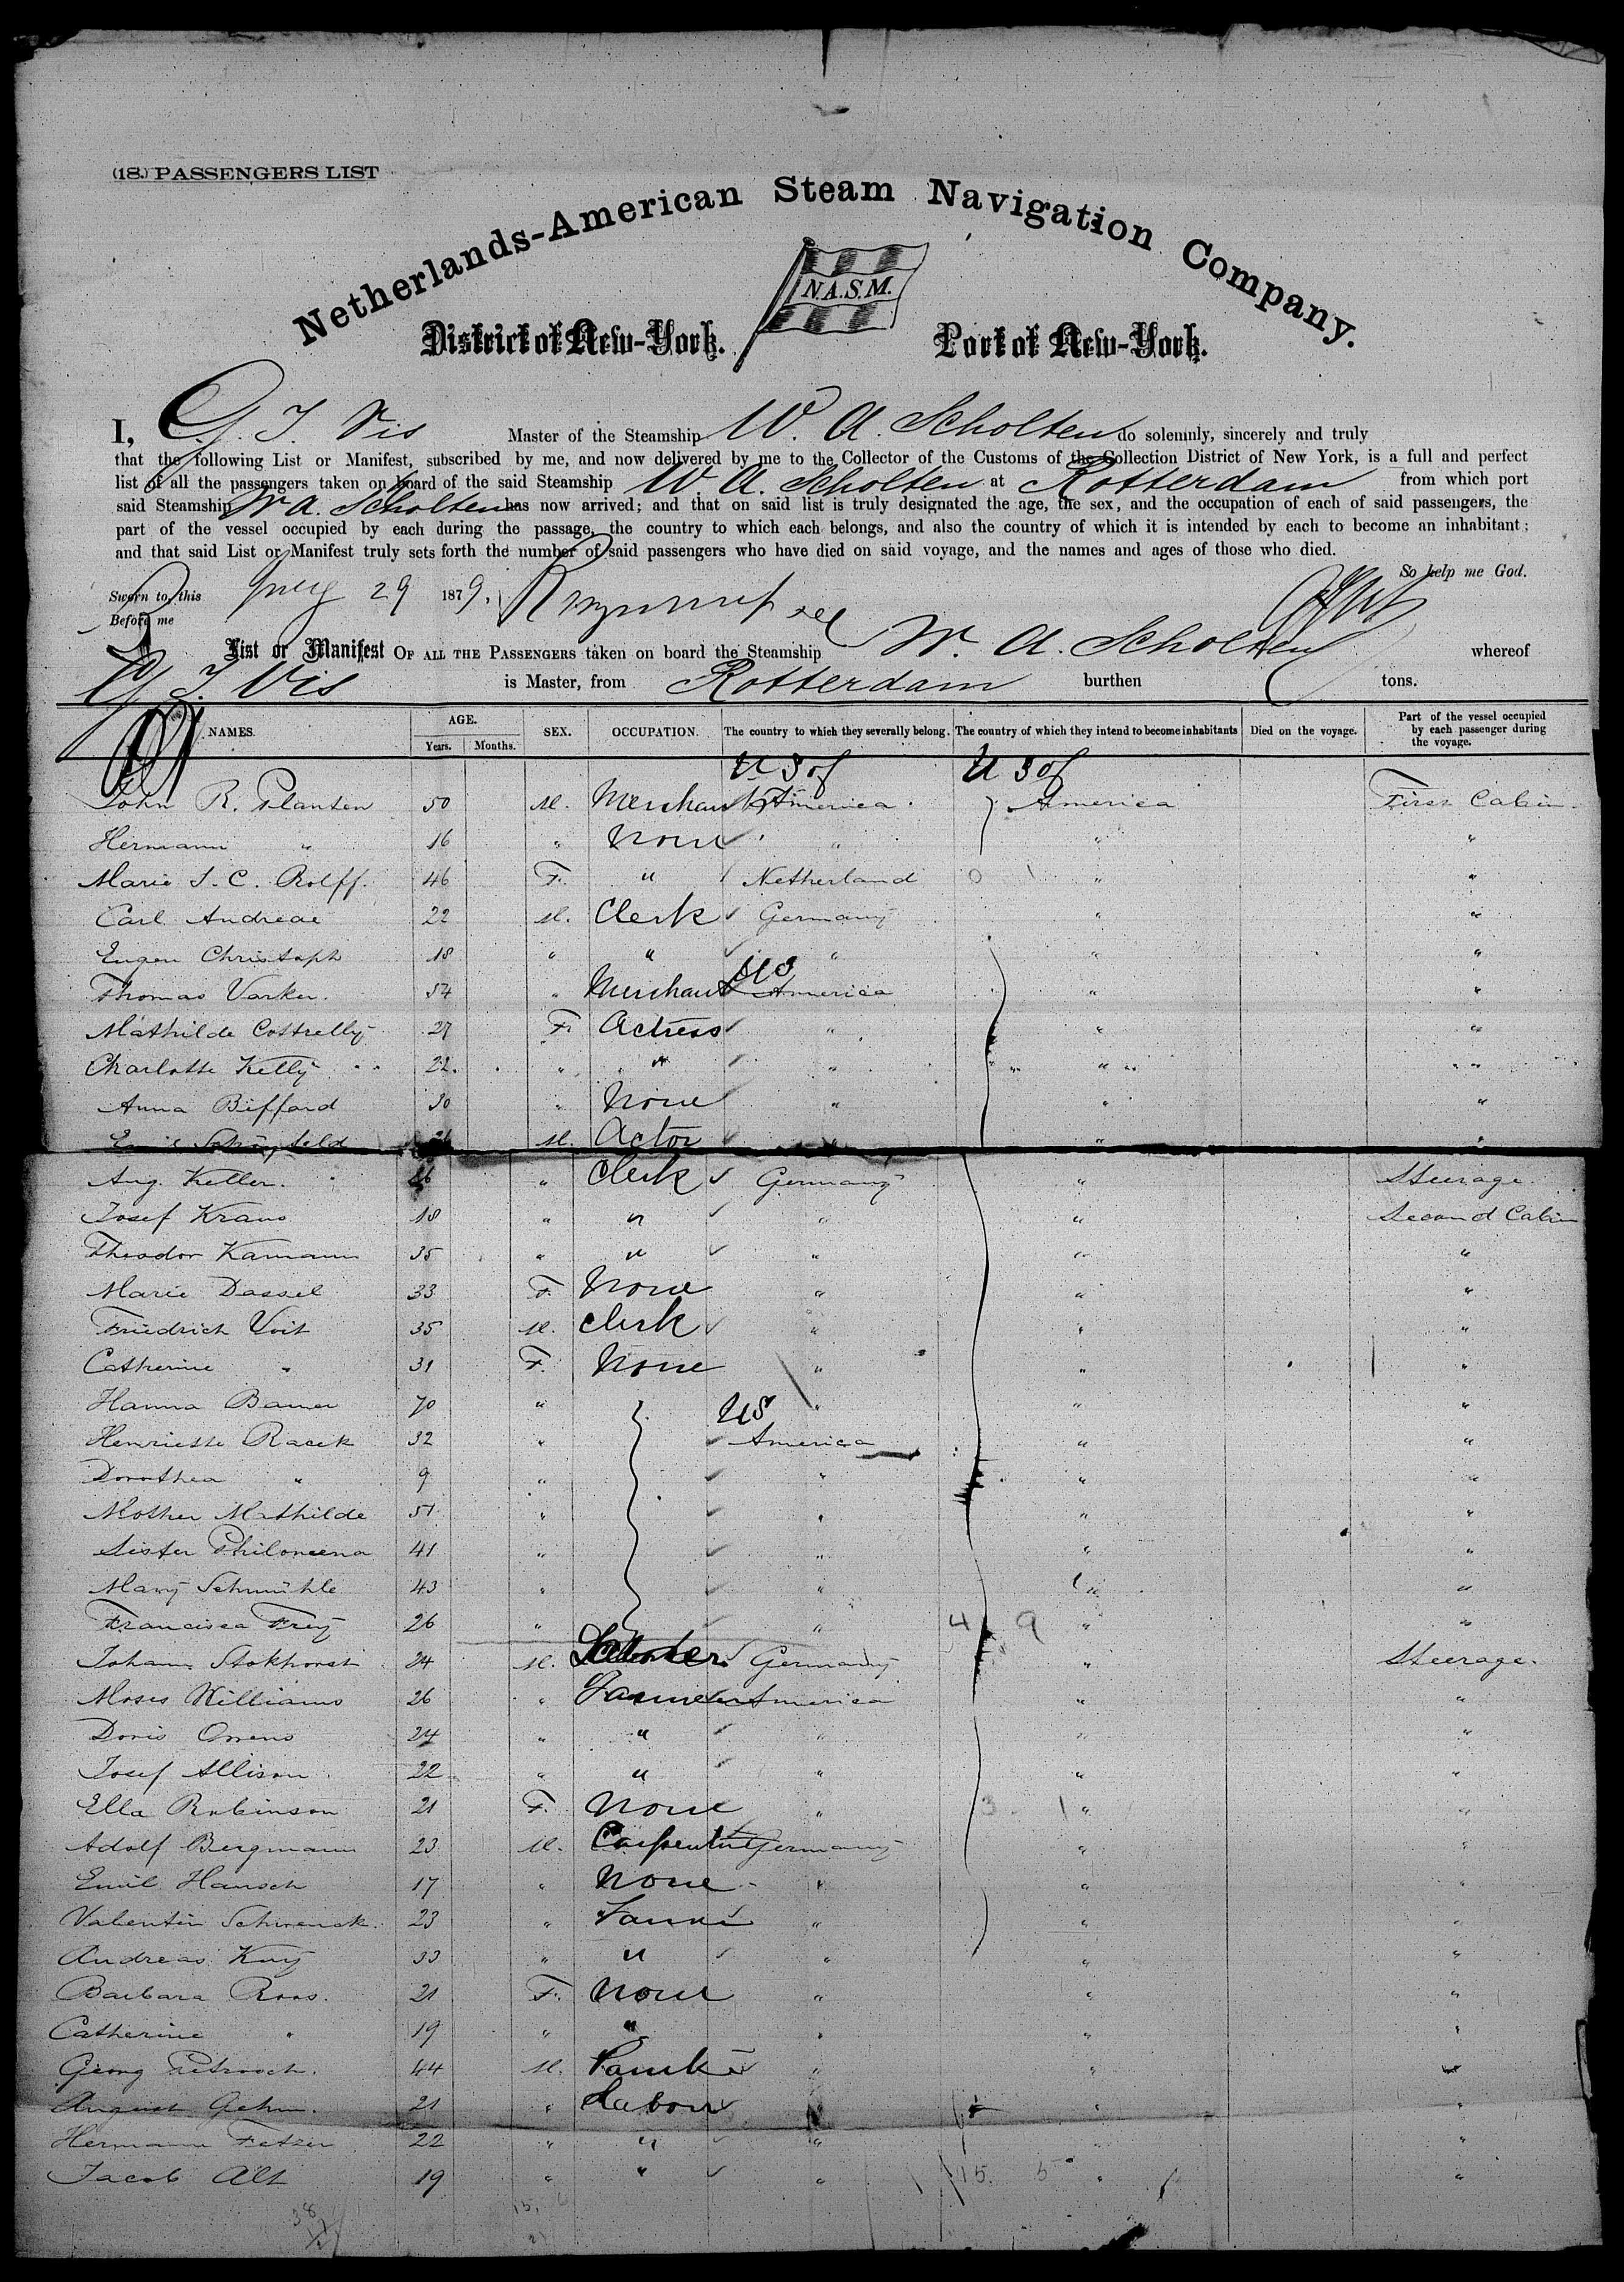 (18.) PASSENGERS LIST
Netherlands-American Steam Navigation Company.
N.A.S.M.
District of New-York. Port of New-York.
I, G. J. Vis Master of the Steamship W. A. Scholten do solemnly, sincerely and truly
that the following List or Manifest, subscribed by me, and now delivered by me to the Collector of the Customs of the Collection District of New York, is a full and perfect
list of all the passengers taken on board of the said Steamship W. A. Scholten at Rotterdam from which port
said Steamship W. A. Scholten has now arrived; and that on said list is truly designated the age, the sex, and the occupation of each of said passengers, the
part of the vessel occupied by each during the passage, the country to which each belongs, and also the country of which it is intended by each to become an inhabitant;
and that said List or Manifest truly sets forth the number of said passengers who have died on said voyage, and the names and ages of those who died.
So help me God.
Sworn to, this 29 1879.
Before me
List or Manifest OF ALL THE PASSENGERS taken on board the Steamship W. A. Scholten whereof
G. J. Vis is Master, from Rotterdam burthen tons.
NAMES. AGE. Years. Months. SEX. OCCUPATION. The country to which they severally belong. The country of which they intend to become inhabitants Died on the voyage. Part of the vessel occupied by each passenger during the voyage.
U S of U S of
John R. Planten 50 M. Merchant America. America First Cabin.
Hermann " 16 " None " " "
Marie J. C. Rolff. 46 F. " Netherland " "
Carl Andreae 22 M. Clerk Germany " "
Eugen Christoph 18 " " " " "
Thomas Varker. 54 " Merchant US America " "
Mathilde Cottrelly 27 F. Actress " " "
Charlotte Kelly 22. " " " " "
Anna Bifford 30 " None " " "
M. Actor " " "
Aug. Keller. 26 " Clerk Germany " Steerage.
Josef Kraus 18 " " " " Second Cabin
Theodor Kamann 35 " " " " "
Marie Dassel 33 F. None " " "
Friedrich Voit 35 M. Clerk " " "
Catherine " 31 F. None " " "
Hanna Bauer 70 " " " "
Henriette Racek 32 " US America " "
Dorothea " 9 " " " "
Mother Mathilde 51 " " " "
Sister Philomena 41 " " " "
Mary Schmühle 43 " " " "
Francisca Frey 26 " " 4 9 " "
Johann Stokhorst 24 M. Germany " Steerage.
Moses Williams 26 " Farmer America " "
Doris Owens 24 " " " " "
Josef Allison 22 " " " " "
Ella Robinson 21 F. None " 3. 1 " "
Adolf Bergmann 23 M. Carpenter Germany " "
Emil Hausch 17 " None " " "
Valentin Schwenck. 23 " Farmer " " "
Andreas Kury 33 " " " " "
Barbara Roos. 21 F. None " " "
Catherine " 19 " " " " "
Georg 44 M. " " "
August Gehm. 21 " Labour " " "
Hermann Fetzer 22 " " " "
Jacob Alt 19 " " " 15. 5 " "
38